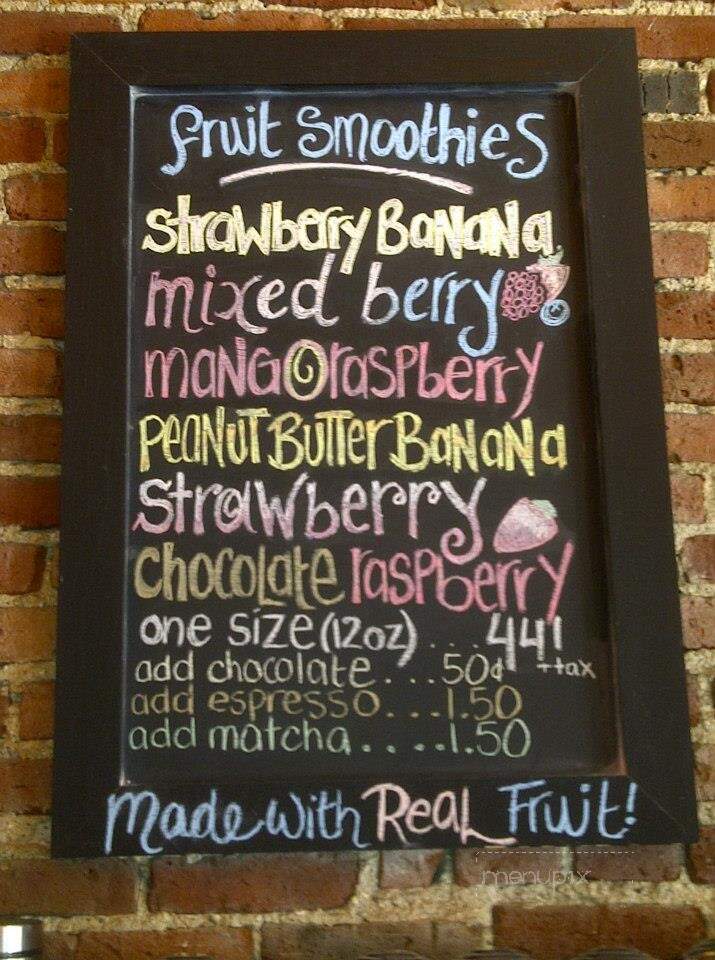 fruit Smoothies
strawberry BaNaNa
mixed berry
maNGO raspberry
PeaNUT BUTTer BaNaNa
Strawberry
chocolate raspberry
one size (12oz) . . . 441
+tax
add chocolate . . . 50¢
add espresso . . . 1.50
add matcha . . . . 1.50
made with ReaL Fruit!
menupix